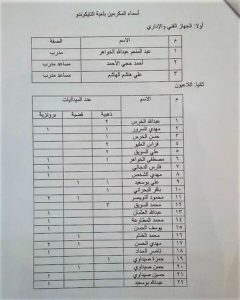 أسماء المكرمين بلعبة التايكوندو
أولا: الجهاز الفني والإداري
م الاسم الصفة
١ عبد المنعم عبدالله الخواهر مدرب
٢ أحمد حجي الأحمد مساعد مدرب
٣ علي هاشم الهاشم مساعد مدرب
ثانيا: اللاعبون
م الاسم عدد الميداليات
ذهبية فضية برونزية
١ عبدالله الخرس ٢
٢ مهدي المرور ١ ١
٣ حسن الخرس ١
٤ فراس العليو ٢
٥ علي السويق ٢
٦ مصطفى الخواهر ١ ١
٧ فارس الدجاني ١
٨ مهدي الشخص ٢
٩ علي بوسعيد ١
١٠ باقر البحراني
١١ محمود النويصر ٢
١٢ محمد السويق ٣
١٣ عبدالله العثمان ١
١٤ محمد المطاوعة ١
١٥ يوسف الحسن
١٦ محمد الغنام ١
١٧ مهدي الحسن ١
١٨ ناصر الحداد
١٩ حمزة صيداوي ١
٢٠ حسن صيداوي ١
٢١ حسين صيداوي ١
٢٢ عبدالله بوسعيد